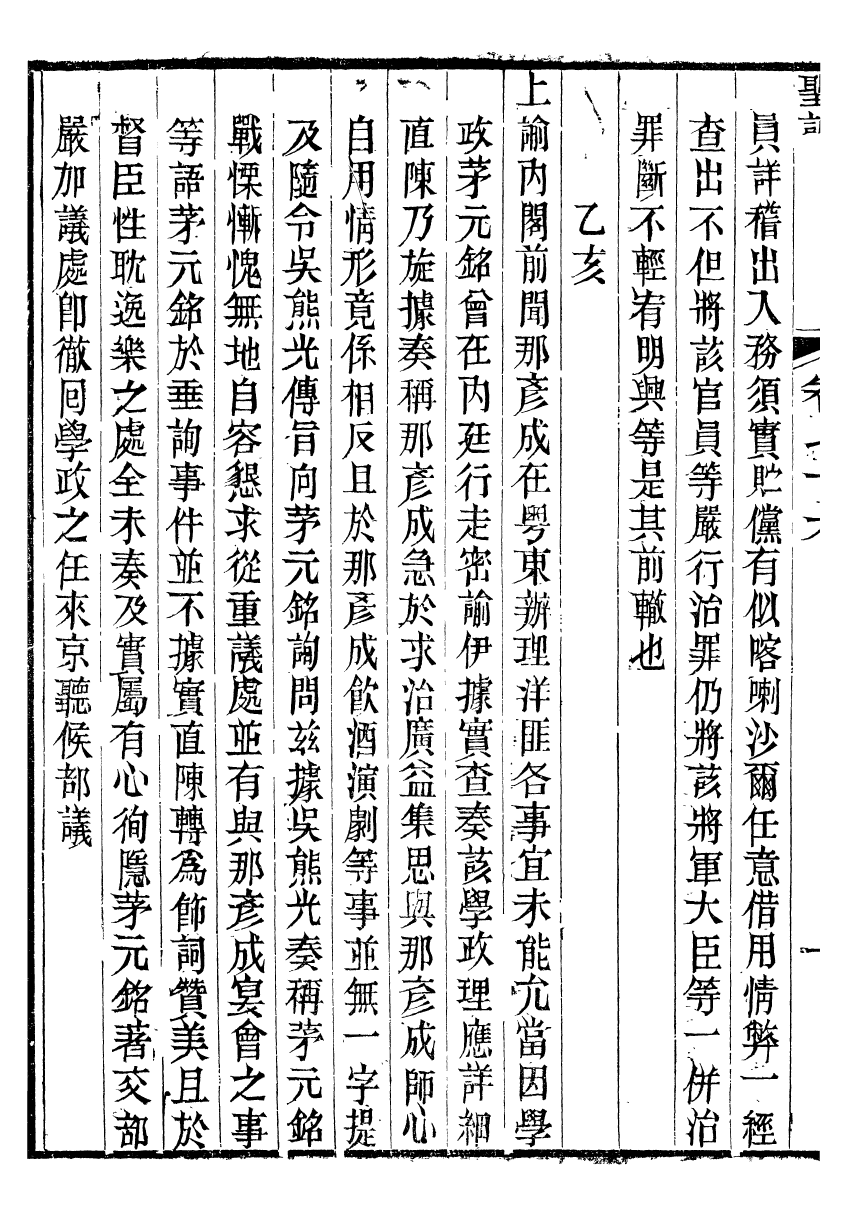 聖訓
員詳稽出入務須實貯儻有似喀喇沙爾任意借用情弊一經
查出不但將該官員等嚴行治罪仍將該將軍大臣等一併治
罪斷不輕宥明興等是其前轍也
乙亥
上諭內閣前聞那彥成在粵東辦理洋匪各事宜未能允當因學
政茅元銘曾在內廷行走密諭伊據實查奏該學政理應詳細
直陳乃旋據奏稱那彥成急於求治廣益集思與那彥成師心
自用情形竟係相反且於那彥成飲酒演劇等事並無一字提
及隨令吳熊光傳旨向茅元銘詢問茲據吳熊光奏稱茅元銘
戰慄慚愧無地自容懇求從重議處並有與那彥成宴會之事
等語茅元銘於垂詢事件並不據實直陳轉為飾詞贊美且於
督臣性耽逸樂之處全未奏及實屬有心徇隱茅元銘著交部
嚴加議處卽徹回學政之任來京聽候部議